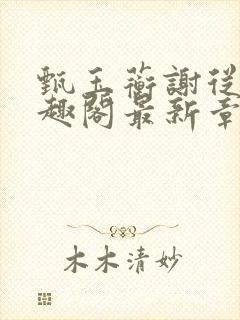 甄玉蘅謝從
趣閣最新章
木木清妙